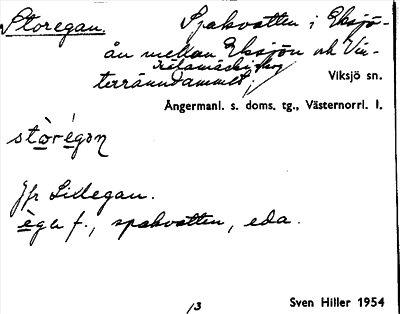 Storegan. Spakvatten i Eksjö-
ån mellan Eksjön och Vin-
terränndammet,
Viksjö sn.
Ångermanl. s. doms. tg., Västernorrl. l.
stòrégǝn
Jfr Lillegan.
èga f., spakvatten, eda.
13
Sven Hiller 1954